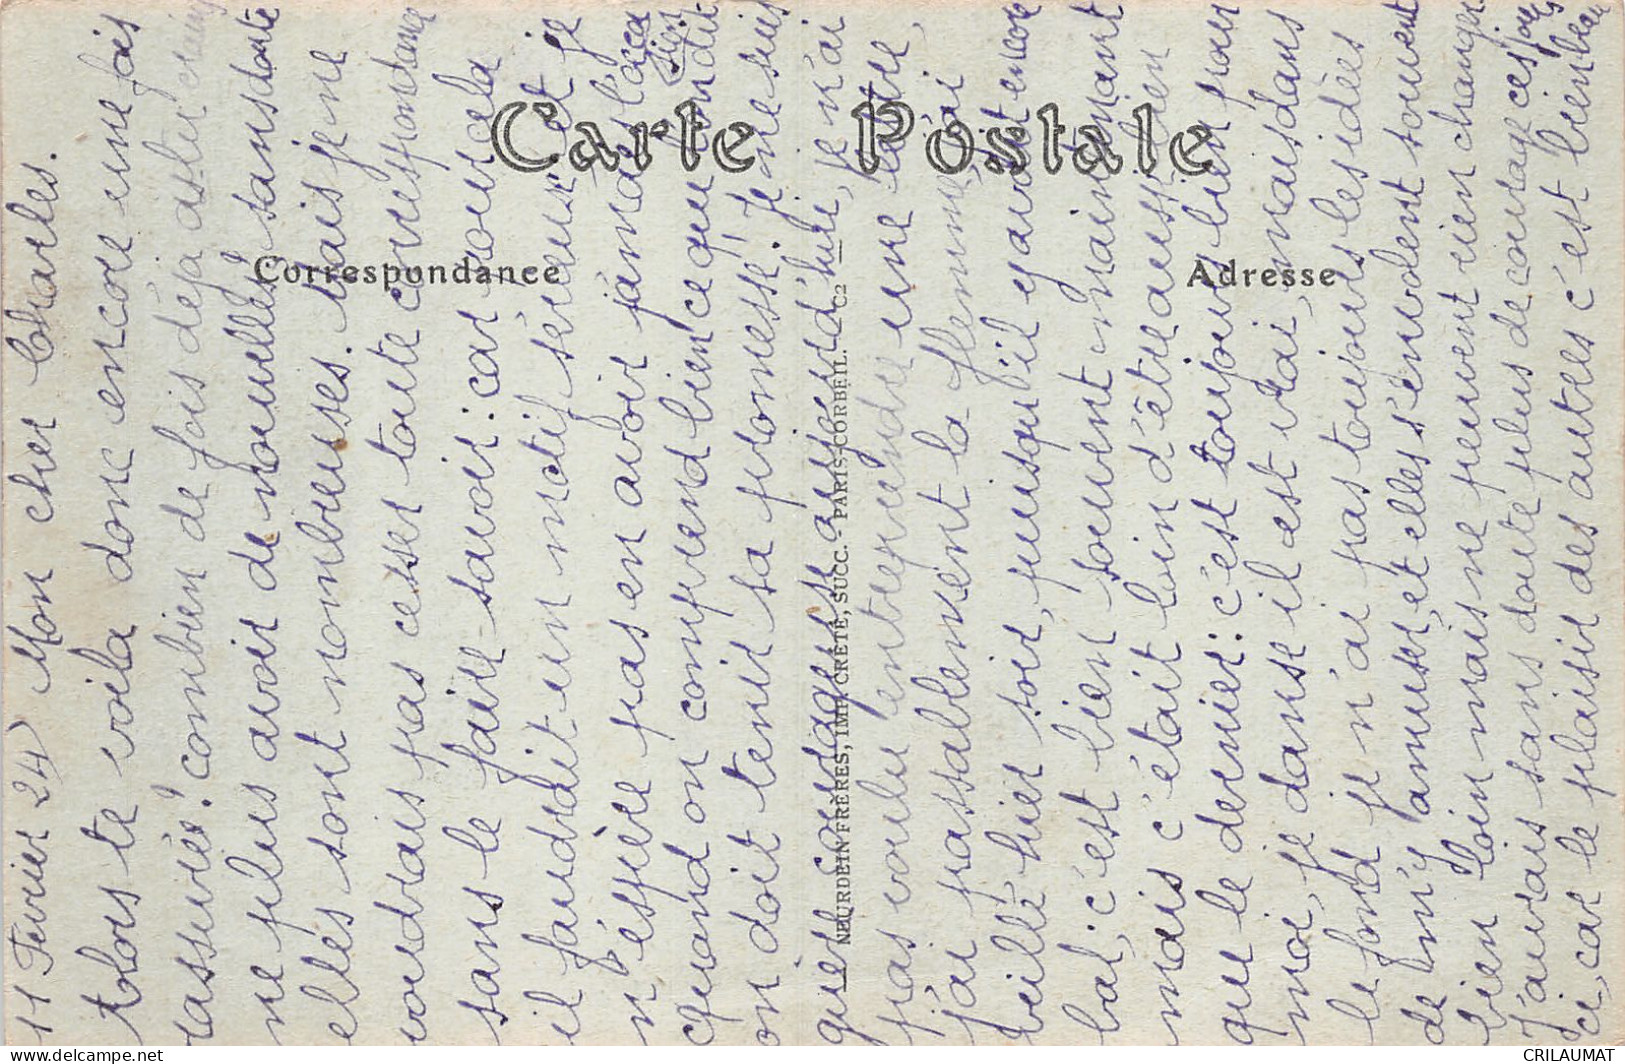 11 Fevrier 24) Mon cher Charles.
Alors te voila donc encore une fois
rassurée! combien de fois déja as-tu crains
ne plus avoir de nouvelles! sans doute
elles sont nombreuses. Mais je ne
voudrais pas cesser toute correspondance
sans le faire-savoir: car pour cela
il faudrait un motif sérieux et je
n'éspère pas en avoir jamais l'occa
sion
quand on comprend bien ce que
on doit tenir sa promesse! Je me suis
guère courageuse aujourd'hui, je n'ai
pas voulu entreprendre une lettre,
j'ai passablement la flemme, j'ai
veillé hier soir, puisqu'il y avait encore
bal; c'est bien souvent maintenant
mais c'était loin d'être aussi bien
que le dernier: c'est toujours bien pour
moi, je danse il est vrai, mais dans
le fond je n'ai pas toujours les idées
de m'y amuser, et elles s'envolent souvent
bien loin mais ne peuvent rien changer
J'aurais sans doute plus de courage ces jours
ci, car le plaisir des autres c'est bien beau
Carte Postale
Correspondance
Adresse
NEURDEIN FRÈRES, IMP. CRÉTÉ, SUCC. - PARIS-CORBEIL. C2
delcampe.net
CRILAUMAT